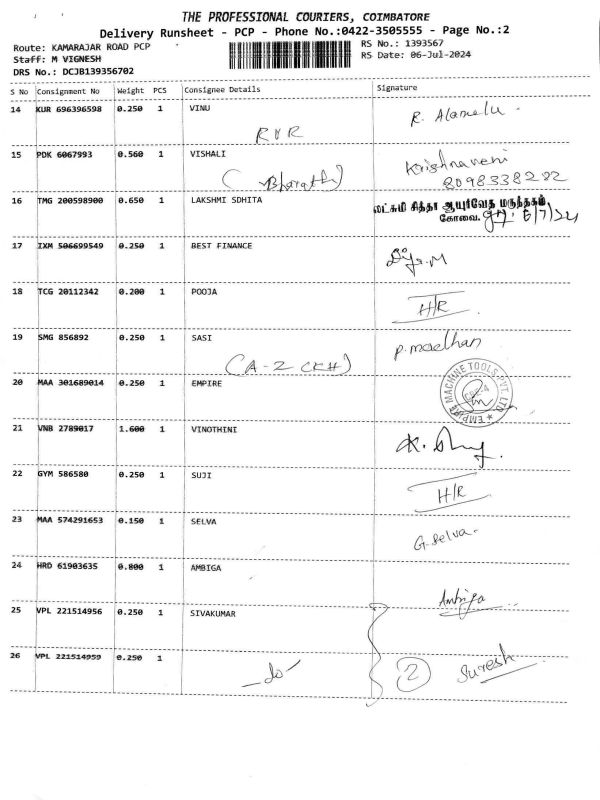 THE PROFESSIONAL COURIERS, COIMBATORE
Delivery Runsheet - PCP - Phone No.:0422-3505555 - Page No.:2
Route: KAMARAJAR ROAD PCP
Staff: M VIGNESH
DRS No.: DCJB139356702
RS No.: 1393567
RS Date: 06-Jul-2024
S No Consignment No Weight PCS Consignee Details Signature
14 KUR 696396598 0.250 1 VINU R. Alamelu
RVR
15 PDK 6067993 0.560 1 VISHALI Krishnaveni
(Bharathi) 8098338282
16 TMG 200598900 0.650 1 LAKSHMI SDHITA லட்சுமி சித்தா ஆயுர்வேத மருந்தகம்
கோவை. 6/7/24
17 IXM 506699549 0.250 1 BEST FINANCE
18 TCG 20112342 0.200 1 POOJA H/R
19 SMG 856892 0.250 1 SASI P. madhan
(A-Z CKH)
20 MAA 301689014 0.250 1 EMPIRE EMPIRE MACHINE TOOLS PVT. LTD
CBE-4
21 VNB 2789017 1.600 1 VINOTHINI
22 GYM 586580 0.250 1 SUJI H/R
23 MAA 574291653 0.150 1 SELVA G. Selva.
24 HRD 61903635 0.800 1 AMBIGA Ambiga
25 VPL 221514956 0.250 1 SIVAKUMAR
26 VPL 221514959 0.250 1 -do- 2 Suresh